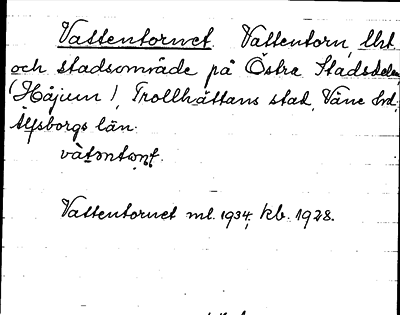 Vattentornet. Vattentorn, lht
och stadsområde på Östra Stadsdelen
(Håjum), Trollhättans stad, Väne hd,
Älfsborgs län.
Vattentornet ml. 1934, kb. 1928.